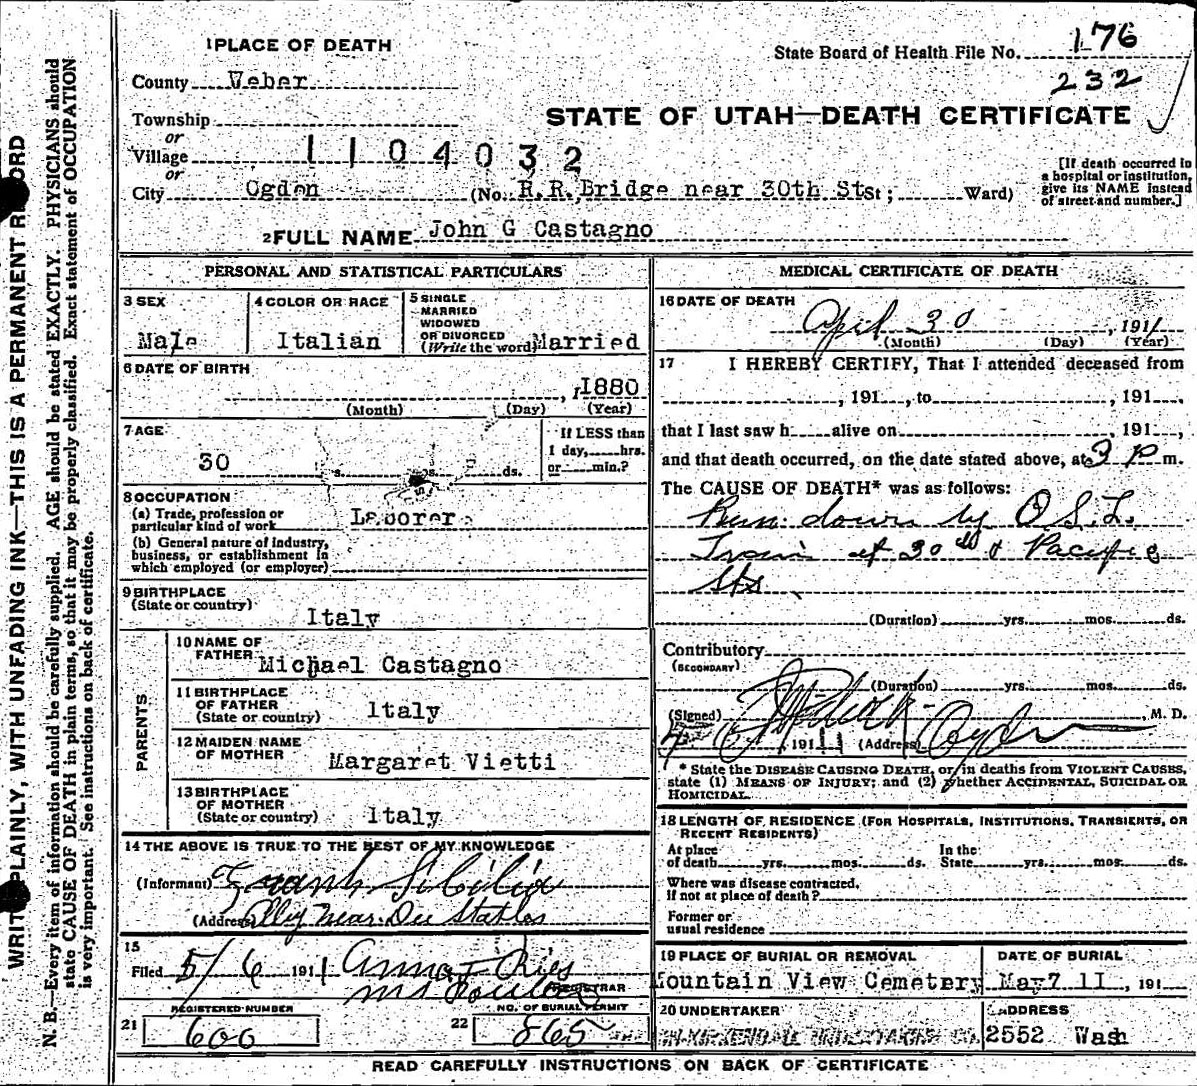 WRITE PLAINLY, WITH UNFADING INK—THIS IS A PERMANENT RECORD
N. B.—Every item of information should be carefully supplied. AGE should be stated EXACTLY. PHYSICIANS should
state CAUSE OF DEATH in plain terms, so that it may be properly classified. Exact statement of OCCUPATION
is very important. See instructions on back of certificate.
1 PLACE OF DEATH
State Board of Health File No. 176
232
County Weber
STATE OF UTAH—DEATH CERTIFICATE
Township
or
Village 1104032
or
City Ogden (No. R.R. Bridge near 30th St St; Ward)
[If death occurred in
a hospital or institution,
give its NAME instead
of street and number.]
2 FULL NAME John G Castagno
PERSONAL AND STATISTICAL PARTICULARS
3 SEX
Male
4 COLOR OR RACE
Italian
5 SINGLE
MARRIED
WIDOWED
OR DIVORCED
(Write the word) Married
6 DATE OF BIRTH
, 1880
(Month) (Day) (Year)
7 AGE
30 s. os. ds.
If LESS than
1 day, hrs.
or min.?
8 OCCUPATION
(a) Trade, profession or
particular kind of work Laborer
(b) General nature of industry,
business, or establishment in
which employed (or employer)
9 BIRTHPLACE
(State or country)
Italy
PARENTS
10 NAME OF
FATHER Michael Castagno
11 BIRTHPLACE
OF FATHER
(State or country) Italy
12 MAIDEN NAME
OF MOTHER Margaret Vietti
13 BIRTHPLACE
OF MOTHER
(State or country) Italy
14 THE ABOVE IS TRUE TO THE BEST OF MY KNOWLEDGE
(Informant) Frank Sibilia
(Address) Ally near Dee Stables
15
Filed 5/6 1911 Anna Ries
REGISTRAR
REGISTERED NUMBER
21 600
NO. OF BURIAL PERMIT
22 865
MEDICAL CERTIFICATE OF DEATH
16 DATE OF DEATH
April 30, 1911
(Month) (Day) (Year)
17 I HEREBY CERTIFY, That I attended deceased from
, 191 , to , 191 ,
that I last saw h alive on , 191 ,
and that death occurred, on the date stated above, at 3 P m.
The CAUSE OF DEATH* was as follows:
Run down by O S.L.
Train at 30th & Pacific
Sts
(Duration) yrs. mos. ds.
Contributory
(SECONDARY)
(Duration) yrs. mos. ds.
(Signed) , M. D.
1911 (Address) Ogden
* State the DISEASE CAUSING DEATH, or, in deaths from VIOLENT CAUSES,
state (1) MEANS OF INJURY; and (2) whether ACCIDENTAL, SUICIDAL OR
HOMICIDAL.
18 LENGTH OF RESIDENCE (FOR HOSPITALS, INSTITUTIONS, TRANSIENTS, OR
RECENT RESIDENTS)
At place
of death yrs. mos. ds. In the
State yrs. mos. ds.
Where was disease contracted,
if not at place of death?
Former or
usual residence
19 PLACE OF BURIAL OR REMOVAL
Mountain View Cemetery
DATE OF BURIAL
May 7 11, 191
20 UNDERTAKER
KIRKENDALL UNDERTAKING CO.
ADDRESS
2552 Wash
READ CAREFULLY INSTRUCTIONS ON BACK OF CERTIFICATE